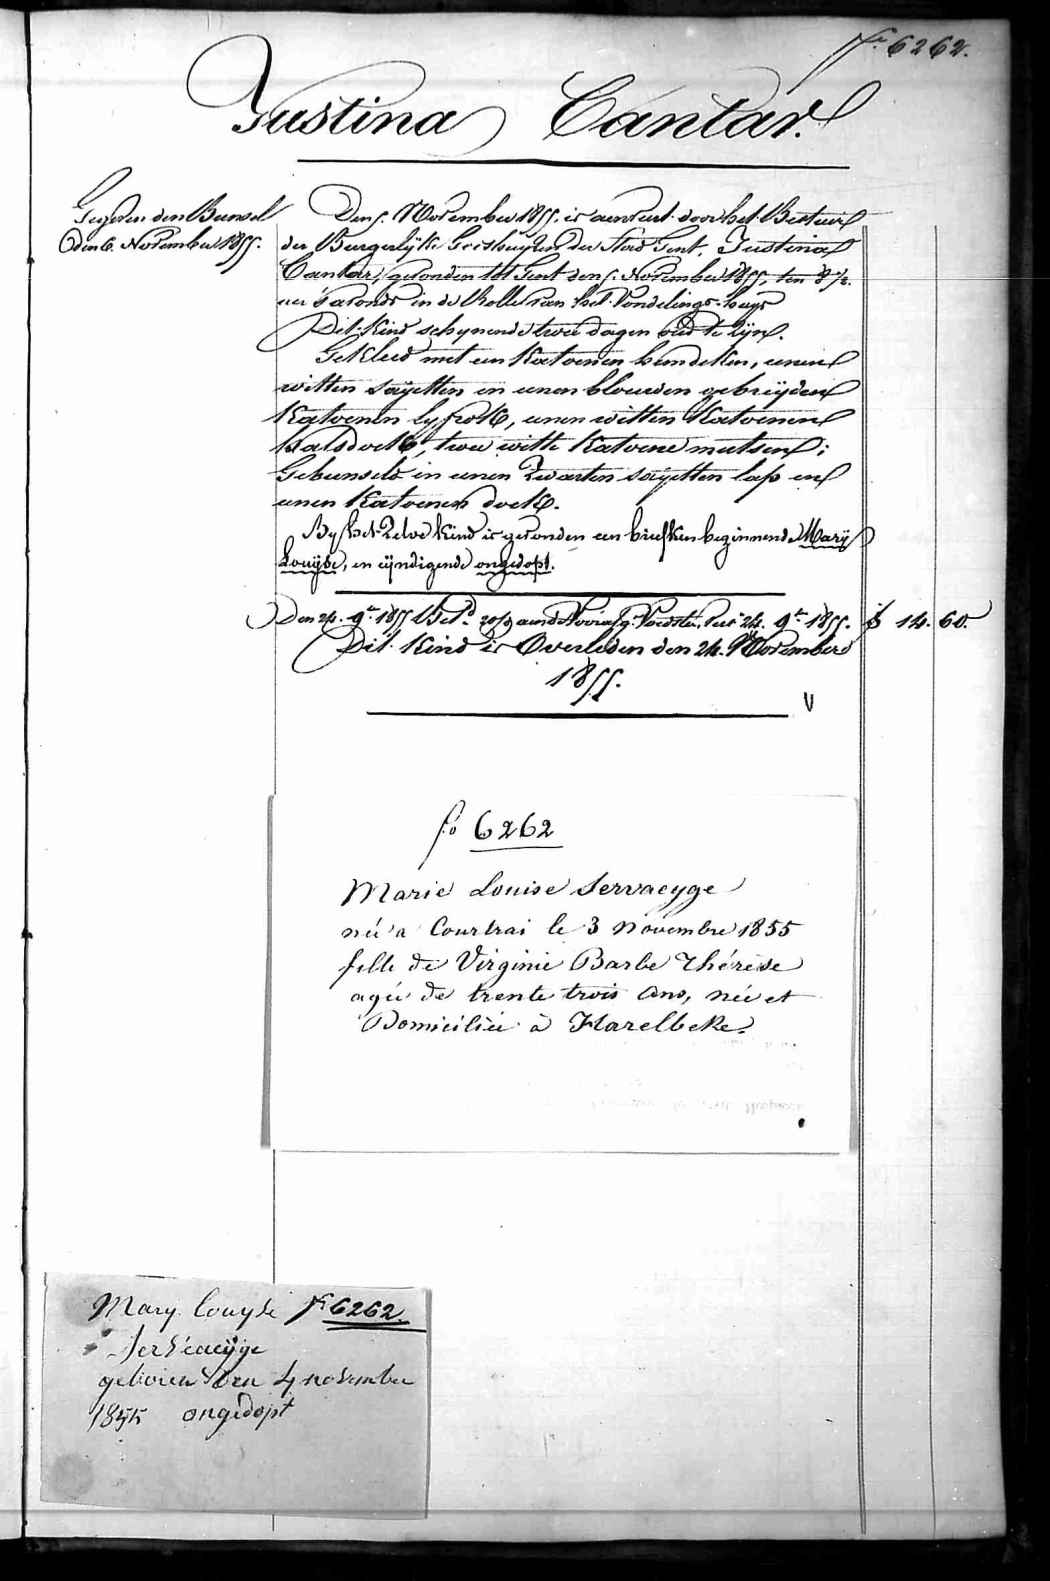 f.º 6262.
Justina Cantar.
Gegeven den Bunsel
den 6. November 1855.
Den 5. November 1855. is aenveirt door het Bestuur
der Burgerlijke Godshuyzen der Stad Gent, Justina
Cantar, gevonden tot Gent den 5. November 1855, ten 8 1/2.
uer s'avonds in de Rolle van het Vondelings-huys
Dit Kind schynende twee dagen oud te zyn.
Gekleed met een Katoenen hemdeken, eenen
witten sayetten en eenen blouwen gebreyden
Katoenen lyfrok, eenen witten Katoenen
halsdoek, twee witte Katoene mutsen;
Gebunseld in eenen Zwarten sayetten lap en
eenen Katoenen doek.
By het Zelve Kind is gevonden een briefken beginnende Mary
Louÿse, en eÿndigende ongedopt.
Den 24. 9.bre 1855 Bet.d aende Voedster 24. 9.bre 1855. 14. 60.
Dit Kind is Overleden den 24. November
1855.
V
fº 6262
Marie Louise Servaeyge
née a Courtrai le 3 Novembre 1855
fille de Virginie Barbe Thérèse
agée de trente trois ans, née et
Domiciliée à Harelbeke.
Mary Louyse fº 6262.
Serväeÿge
geboren den 4 november
1855 ongedopt